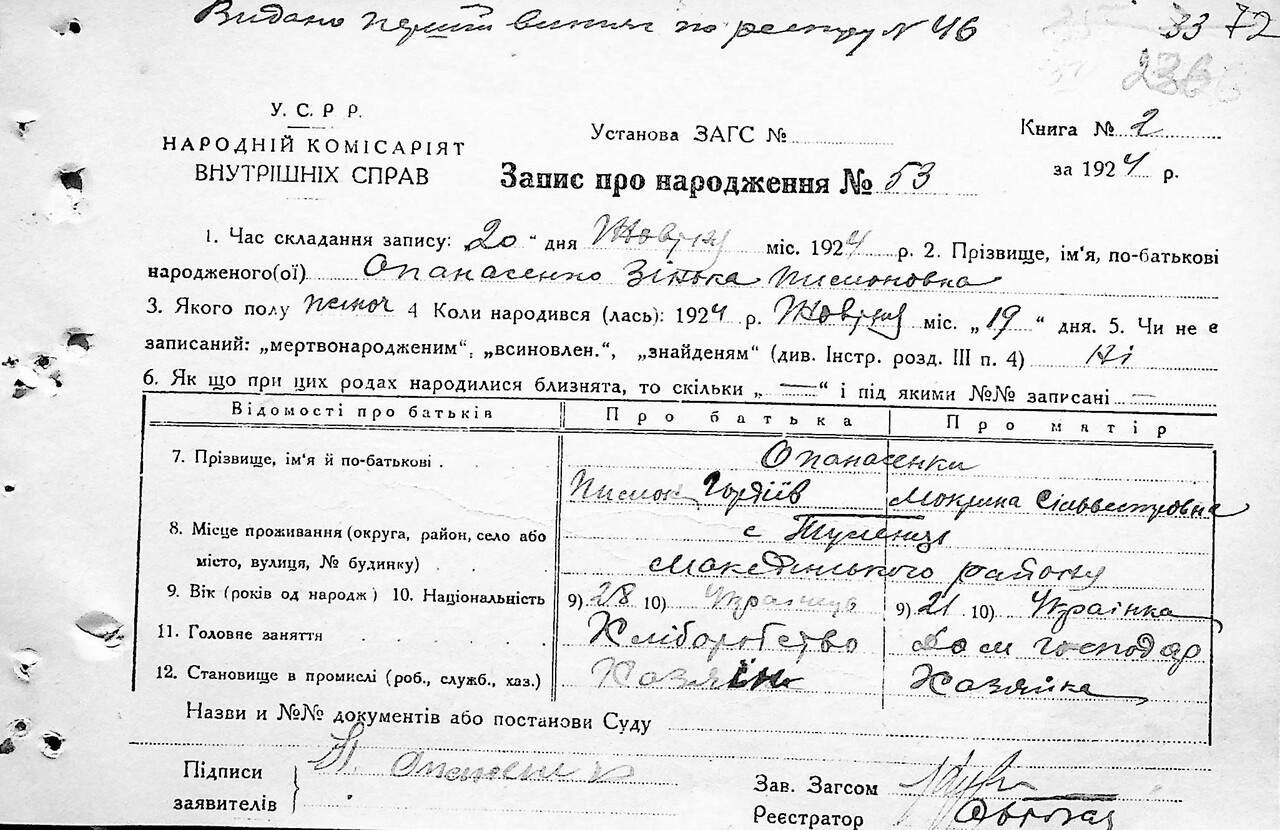 Видано перший витяг по реєстру N 46
33 72
236
У. С. Р Р.
НАРОДНІЙ КОМІСАРІЯТ
ВНУТРІШНІХ СПРАВ
Установа ЗАГС №
Книга № 2
за 1924 р.
Запис про народження № 53
1. Час складання запису: „20“ дня Жовтня міс. 1924 р. 2. Прізвище, ім'я, по-батькові
народженого(ої) Опанасенко Зінька Пилиповна
3. Якого полу жіноч 4 Коли народився (лась): 1924 р. Жовтня міс. „19“ дня. 5. Чи не є
записаний: „мертвонародженим“, „всиновлен.“, „знайденям“ (див. Інстр. розд. III п. 4) Ні
6. Як що при цих родах народилися близнята, то скільки „—“ і під якими №№ записані —
Відомості про батьків Про батька Про матір
7. Прізвище, ім'я й по-батькові Опанасенки
Гордіїв Мокрина Сільвестровна
8. Місце проживання (округа, район, село або с
місто, вулиця, № будинку) району
9. Вік (років од народж) 10. Національність 9) 28 10) Українець 9) 21 10) Українка
11. Головне заняття Хліборобство Дом господар
12. Становище в промислі (роб., служб., хаз.) Хазяїн Хазяйка
Назви и №№ документів або постанови Суду
Підписи
заявителів
П. Опанасенко
Зав. Загсом
Реєстратор